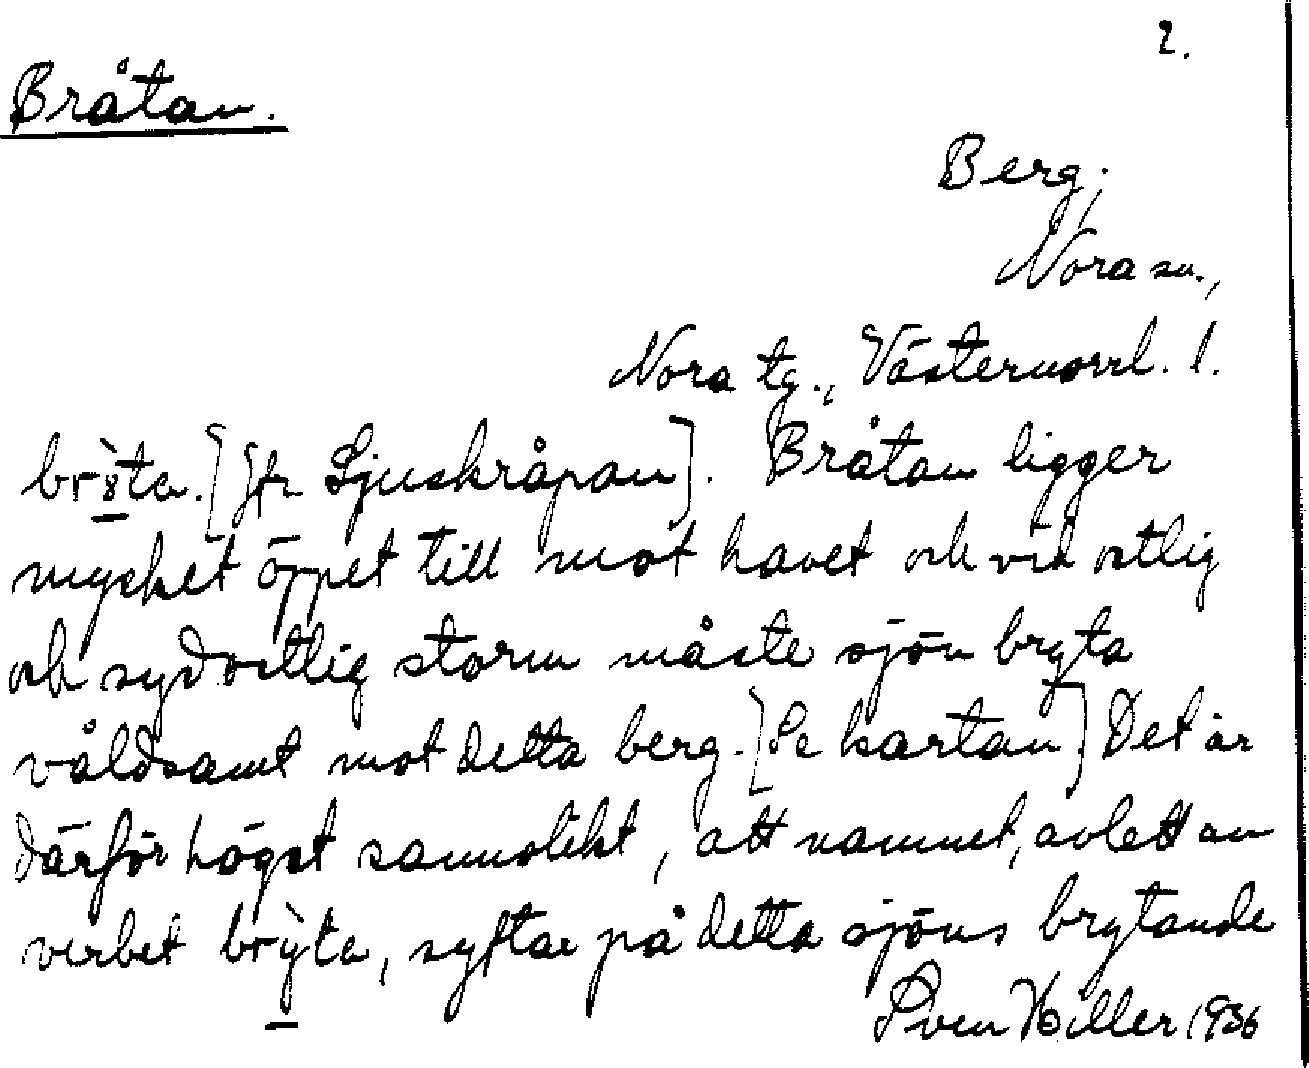 2.
Bråtan.
Berg;
Nora sn.,
Nora tg., Västernorrl. l.
br ta. [Jfr Ljuskråpan]. Bråtan ligger
mycket öppet till mot havet och vid ostlig
och sydostlig storm måste sjön bryta
våldsamt mot detta berg. [Se kartan] Det är
därför högst sannolikt, att namnet, avlett av
verbet brỳta, syftar på detta sjöns brytande
Sven Hiller 1936